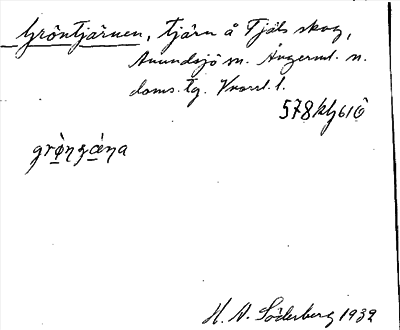 Gröntjärnen, tjärn å Fjäls skog,
Anundsjö sn. Ångerml. n.
doms. tg. Vnorrl. l.
578 klg 616
grø̀nʒæ̀ṇa
H. V. Söderberg 1932